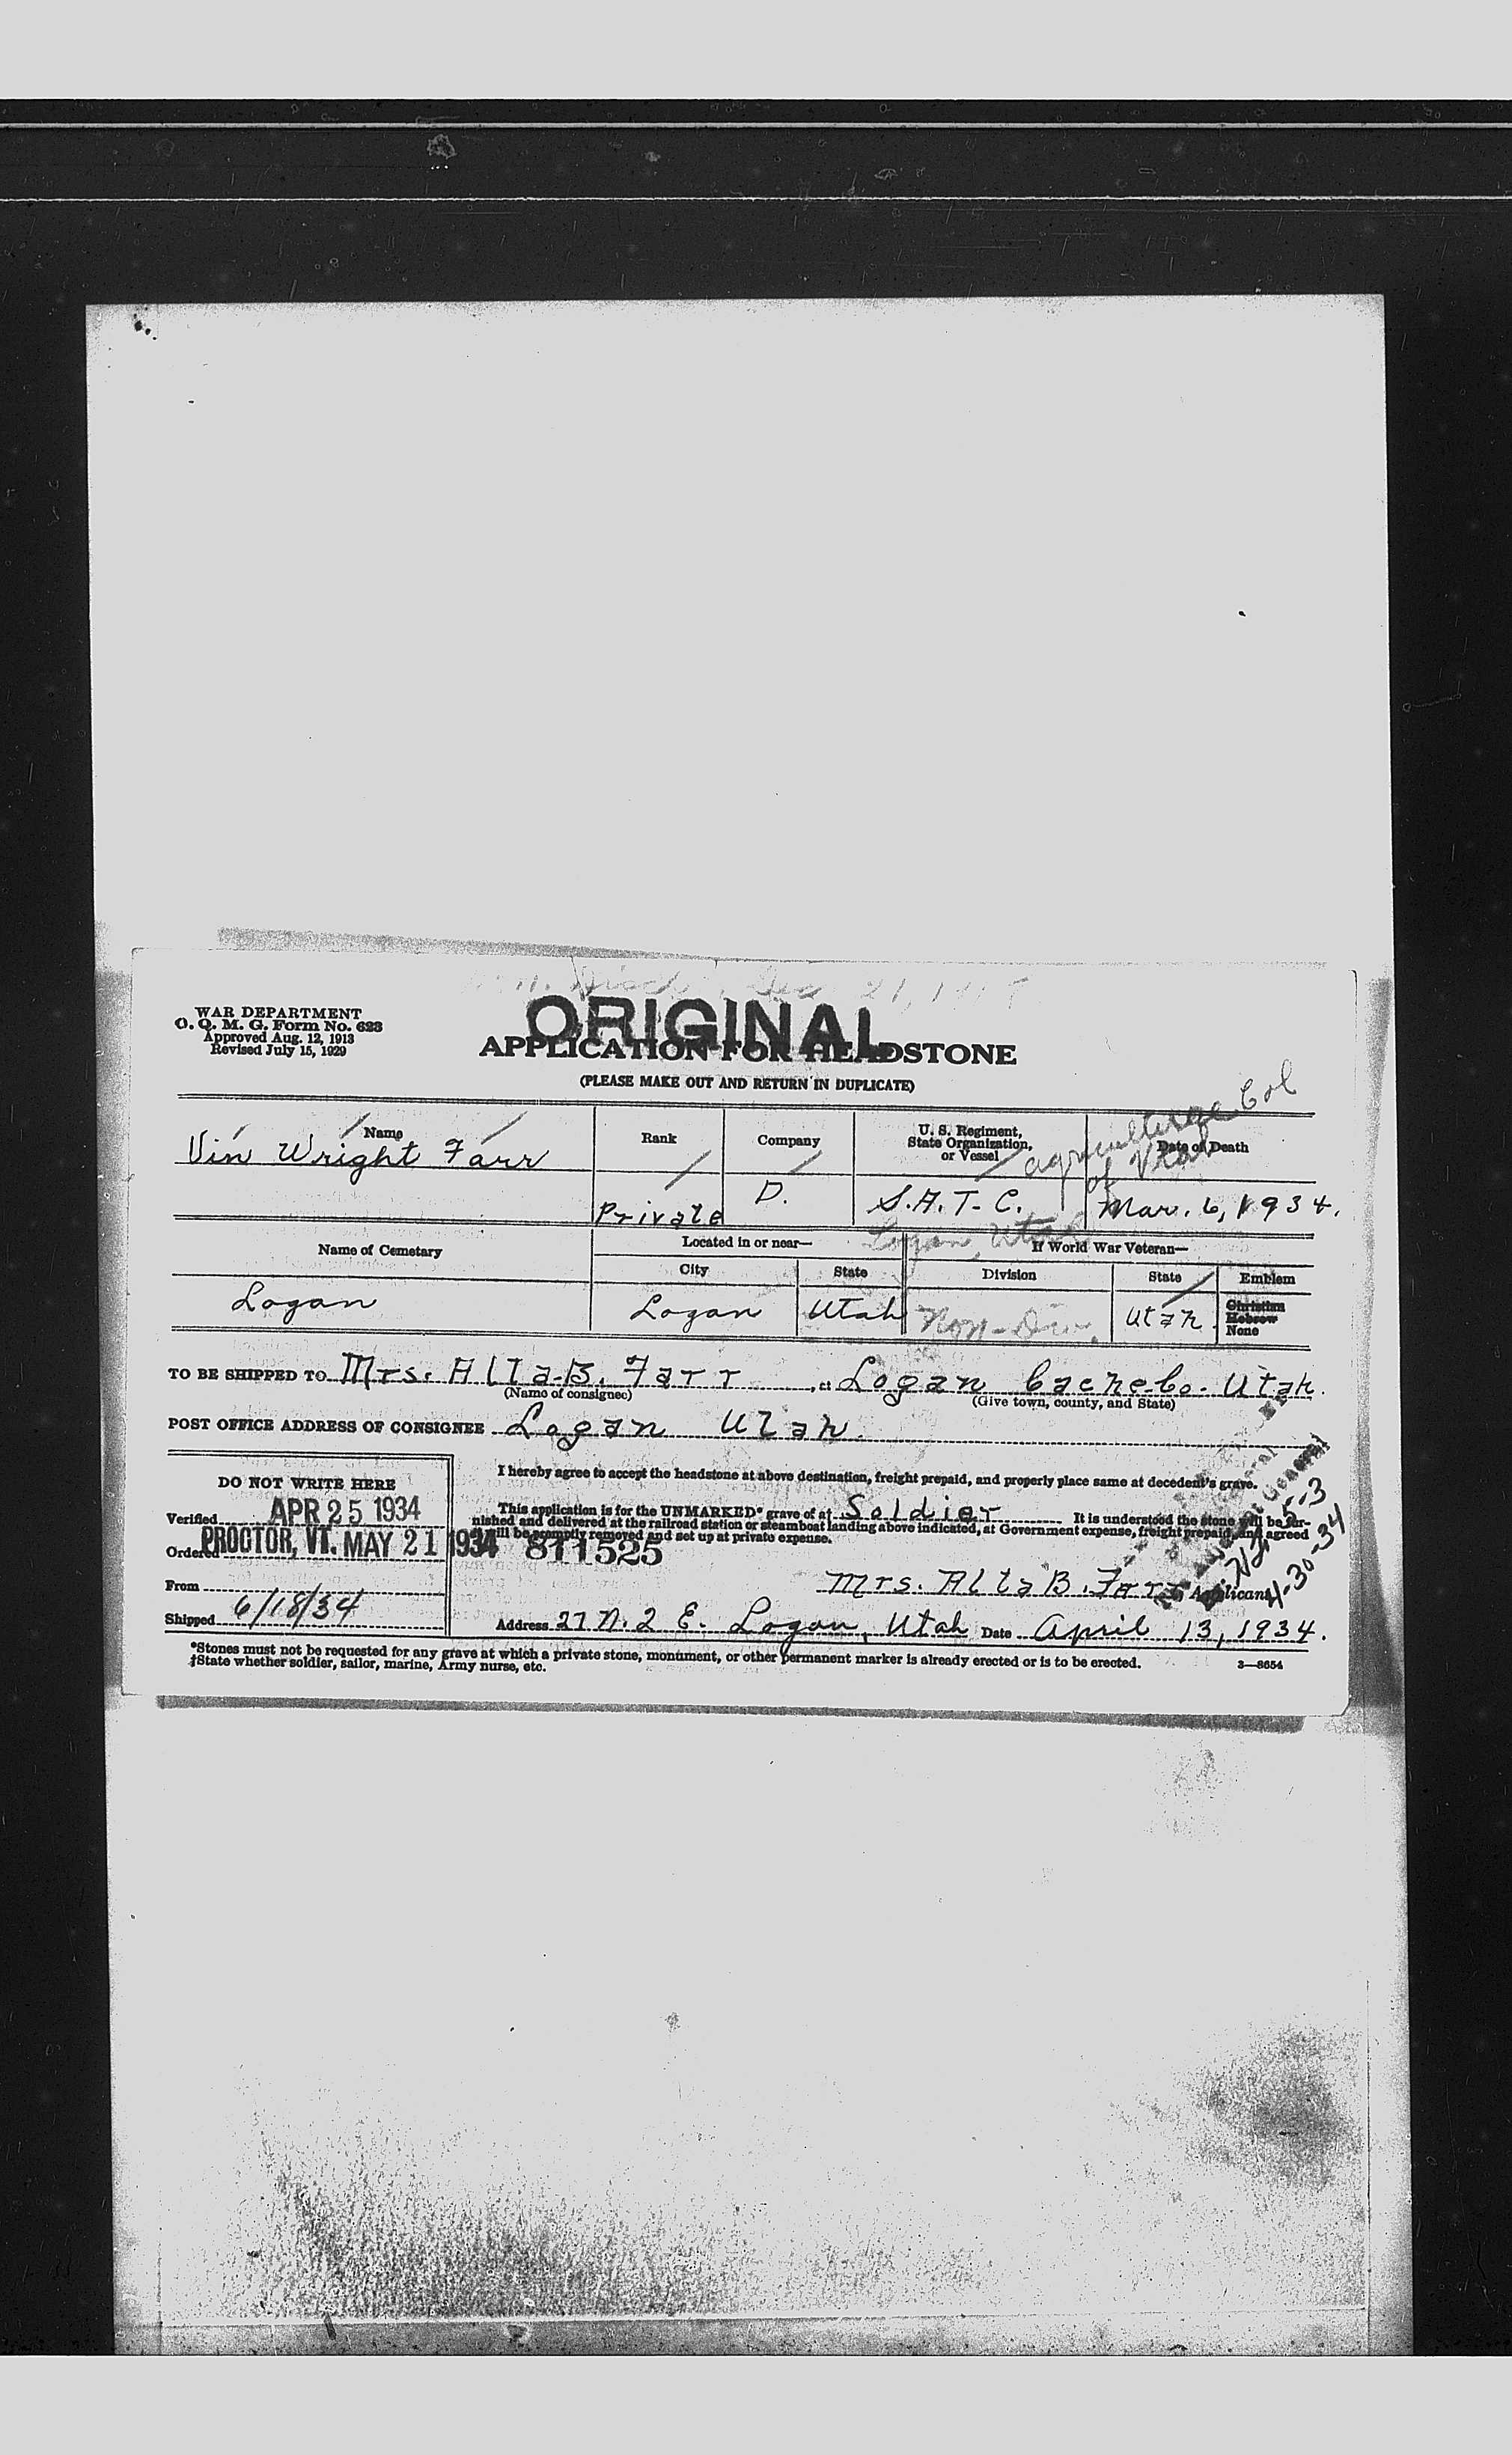 Disch. Dec 21, 191
ORIGINAL
WAR DEPARTMENT
O. Q. M. G. Form No. 623
Approved Aug. 12, 1913
Revised July 15, 1929
APPLICATION FOR HEADSTONE
(PLEASE MAKE OUT AND RETURN IN DUPLICATE)
Agricultural Col
of Utah
Name
Rank
Company
U. S. Regiment,
State Organization,
or Vessel
Date of Death
Vin Wright Farr
Private
D.
S.A.T.C.
Mar. 6, 1934.
Logan, Utah
Name of Cemetery
Located in or near—
If World War Veteran—
City
State
Division
State
Emblem
Logan
Logan
Utah
Non-Div.
Utah.
Christian
Hebrew
None
TO BE SHIPPED TO Mrs. Alta B. Farr, at Logan Cache Co. Utah.
(Name of consignee) (Give town, county, and State)
POST OFFICE ADDRESS OF CONSIGNEE Logan Utah.
DO NOT WRITE HERE
Verified APR 25 1934
Ordered PROCTOR, VT. MAY 21 1934
From
Shipped 6/18/34
I hereby agree to accept the headstone at above destination, freight prepaid, and properly place same at decedent's grave.
This application is for the UNMARKED* grave of a† Soldier. It is understood the stone will be fur-
nished and delivered at the railroad station or steamboat landing above indicated, at Government expense, freight prepaid, and agreed
will be promptly removed and set up at private expense.
811525
5-3
4-30-34
Mrs. Alta B. Farr Applicant
Address 27 N. 2 E. Logan, Utah Date April 13, 1934.
*Stones must not be requested for any grave at which a private stone, monument, or other permanent marker is already erected or is to be erected.
†State whether soldier, sailor, marine, Army nurse, etc.
3—8654